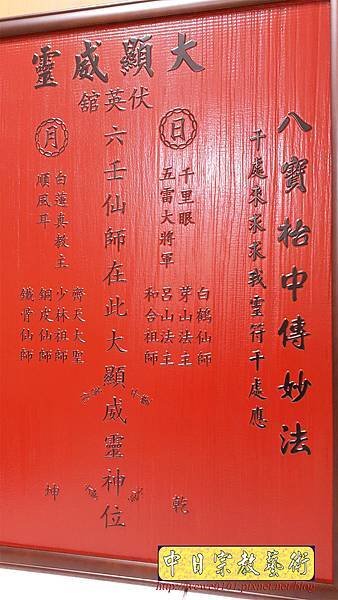 大顯威靈
伏英舘
八寶枱中傳妙法
千處來求我靈符千處應
日
千里眼
五雷大將軍
白鶴仙師
茅山法主
呂山法主
和合祖師
六壬仙師在此大顯威靈神位
月
白蓮真教主
順風耳
齊天大聖
少林祖師
銅皮仙師
鐵骨仙師
乾
坤
中日宗教藝術